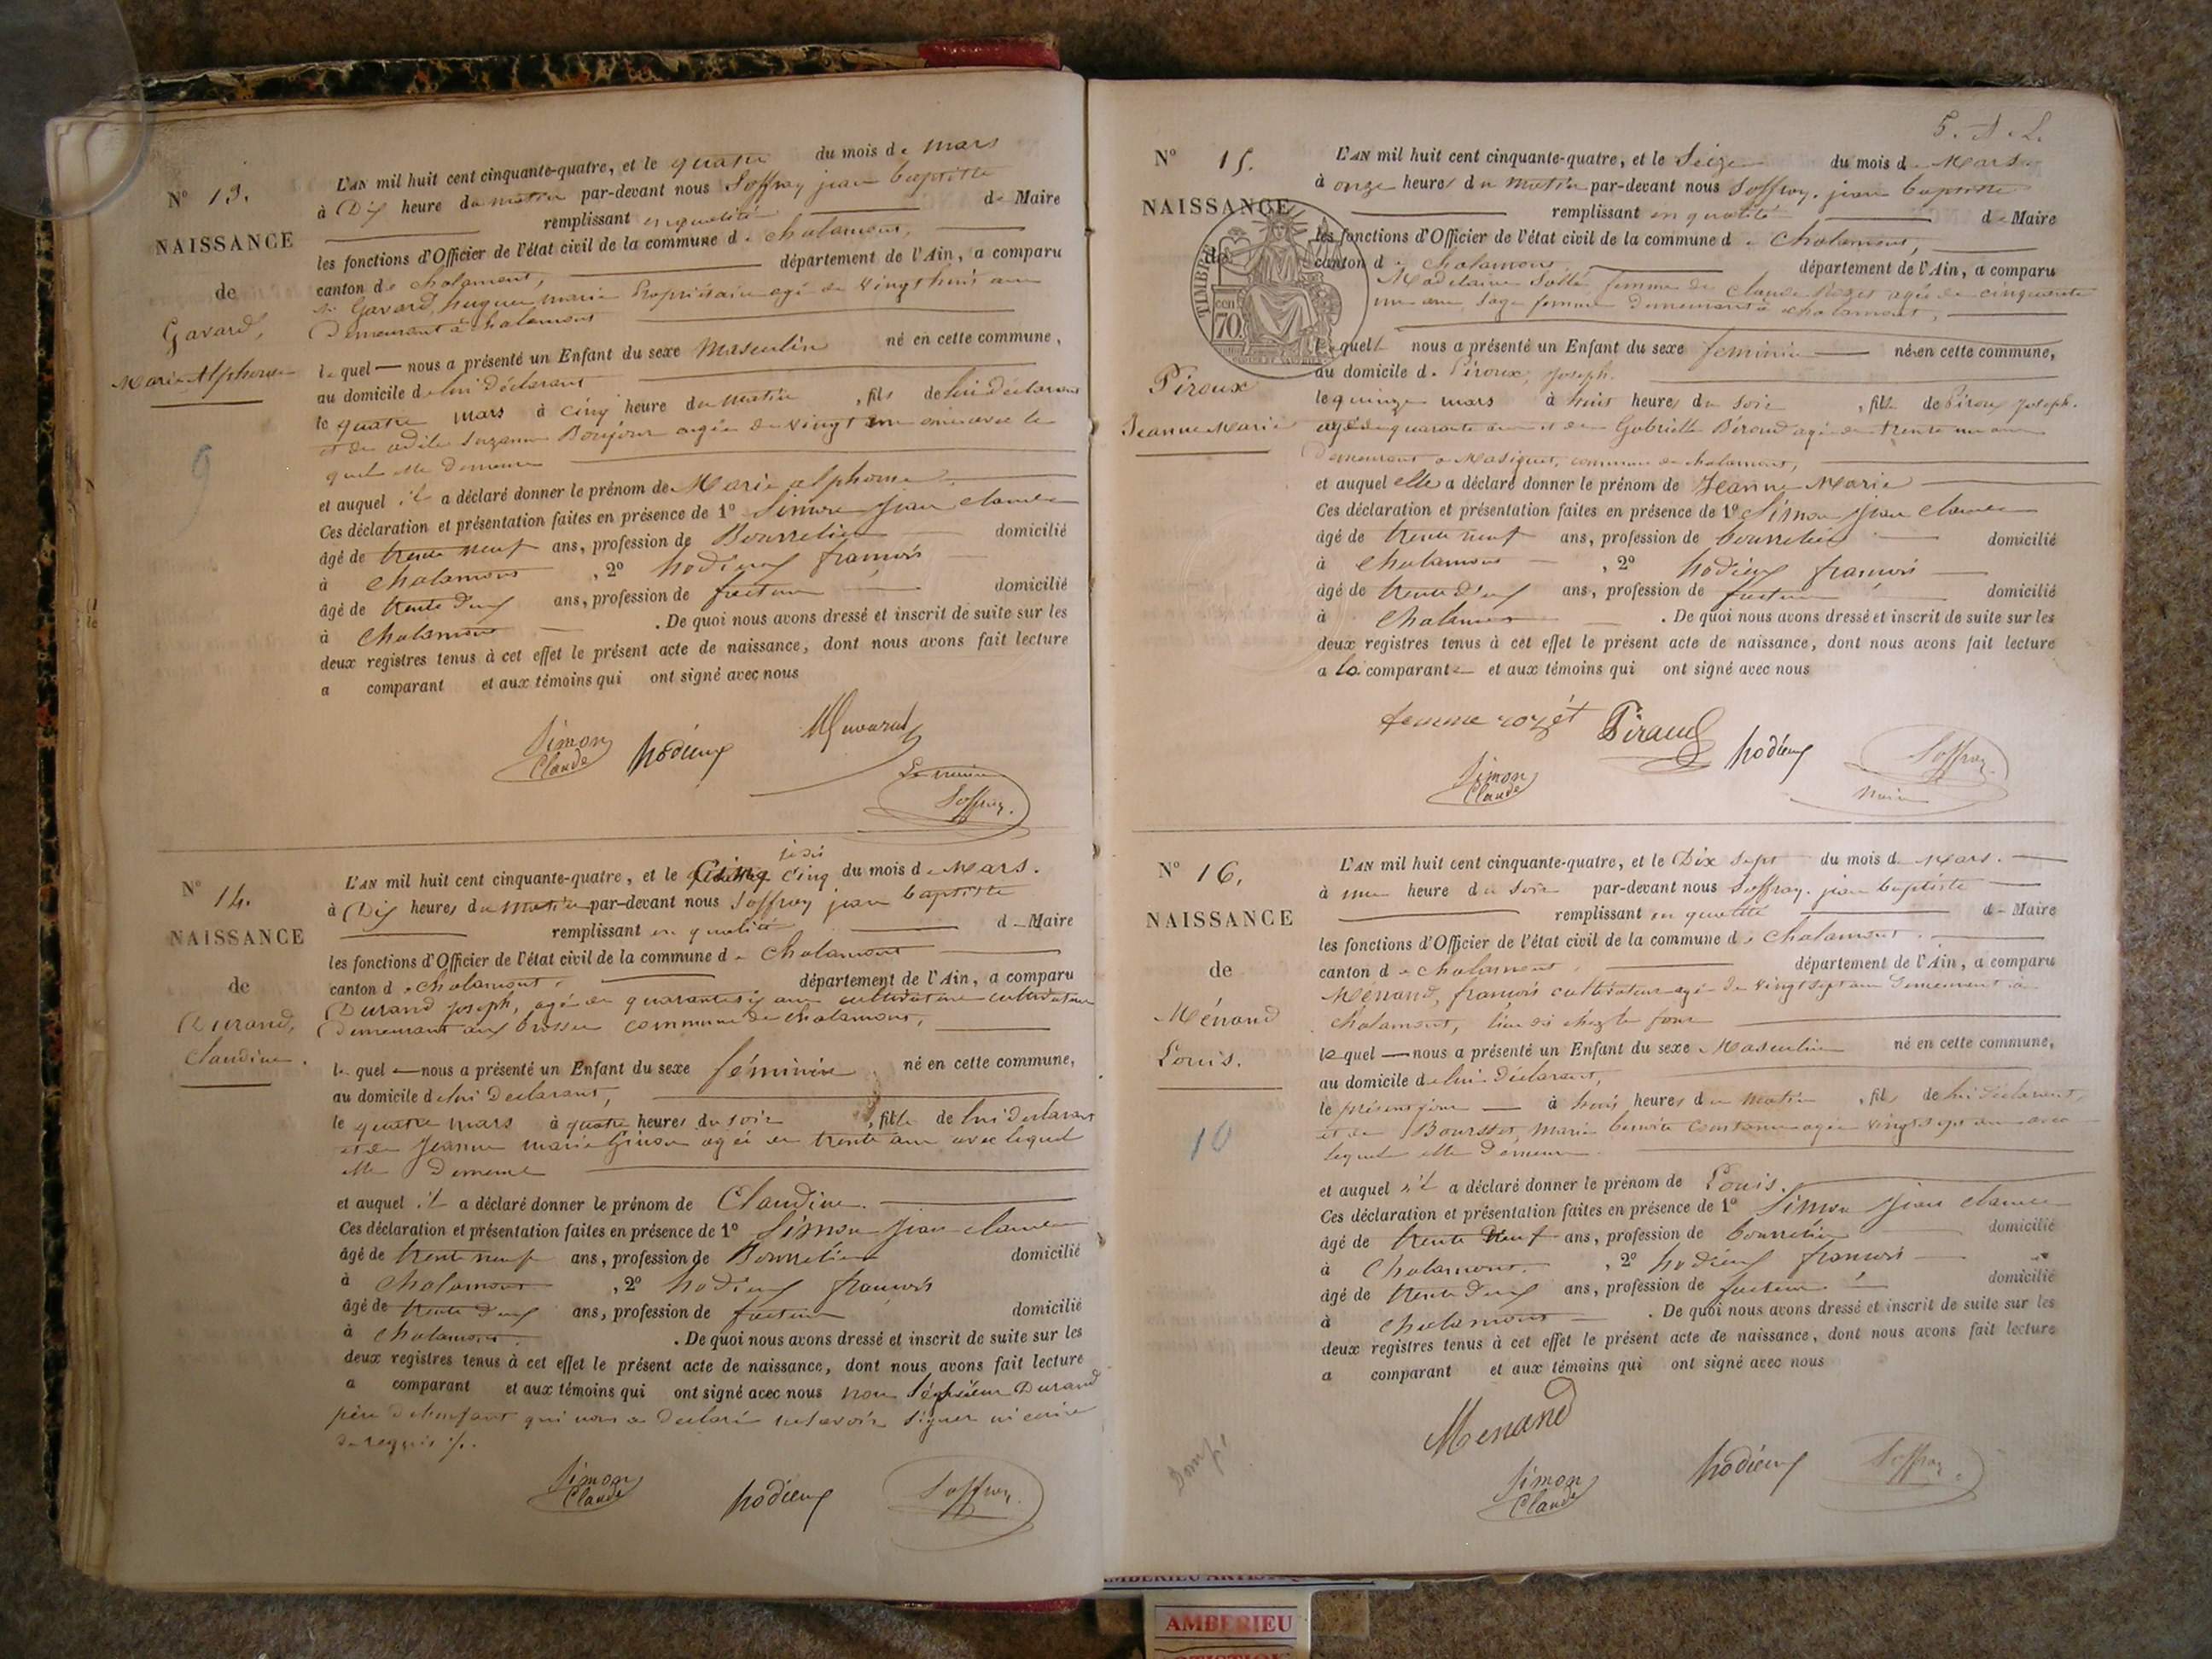 N° 13.
NAISSANCE
de
Gavard,
Marie Alphonse
9
L'AN mil huit cent cinquante-quatre, et le quatre du mois de mars
à Dix heure du matin par-devant nous Soffray jean baptiste
remplissant en qualité de Maire
les fonctions d'Officier de l'état civil de la commune de chalamont,
canton de chalamont, département de l'Ain, a comparu
Gavard, hugues marie Propriétaire agé de vingt huit ans
Demeurant à chalamont
lequel nous a présenté un Enfant du sexe Masculin né en cette commune,
au domicile de lui déclarant
le quatre mars à cinq heure du matin, fils de lui déclarant
et de adèle Suzanne Bonjour agée de vingt un ans avec le
quel elle demeure
et auquel il a déclaré donner le prénom de Marie alphonse
Ces déclaration et présentation faites en présence de 1° Simon jean claude
âgé de trente neuf ans, profession de Bourrelier domicilié
à chalamont, 2° hodieux françois
âgé de trente deux ans, profession de facteur domicilié
à chalamont. De quoi nous avons dressé et inscrit de suite sur les
deux registres tenus à cet effet le présent acte de naissance, dont nous avons fait lecture
a comparant et aux témoins qui ont signé avec nous
Simon
Claude hodieux Le maire
Soffray.
N° 14.
NAISSANCE
de
Durand,
Claudine.
L'AN mil huit cent cinquante-quatre, et le cinq du mois de Mars.
à Dix heures du matin par-devant nous Soffray jean baptiste
remplissant en qualité de Maire
les fonctions d'Officier de l'état civil de la commune de chalamont
canton de chalamont. département de l'Ain, a comparu
Durand joseph, agé de quarante six ans cultivateur cultivateur
demeurant aux brosses commune de chalamont,
lequel nous a présenté un Enfant du sexe féminin né en cette commune,
au domicile de lui déclarant,
le quatre mars à quatre heures du soir, fille de lui déclarant
et de Jeanne marie agée de trente ans avec lequel
elle Demeure
et auquel il a déclaré donner le prénom de Claudine.
Ces déclaration et présentation faites en présence de 1° Simon jean claude
âgé de trente neuf ans, profession de Bourrelier domicilié
à chalamont, 2° hodieux françois
âgé de trente deux ans, profession de facteur domicilié
à chalamont. De quoi nous avons dressé et inscrit de suite sur les
deux registres tenus à cet effet le présent acte de naissance, dont nous avons fait lecture
a comparant et aux témoins qui ont signé avec nous non Durand
père de l'enfant qui nous a déclaré ne savoir signer ni écrire
de requis
Simon
Claude hodieux Soffray.
N° 15.
NAISSANCE
de
TIMBRE
70
Piroux
Jeanne Marie
L'AN mil huit cent cinquante-quatre, et le Seize du mois de Mars
à onze heures du matin par-devant nous Soffray jean baptiste
remplissant en qualité de Maire
les fonctions d'Officier de l'état civil de la commune de chalamont,
canton de chalamont, département de l'Ain, a comparu
Madelaine femme de Claude Rozet agée de cinquante
un ans, sage femme Demeurant à chalamont,
lequelle nous a présenté un Enfant du sexe féminin né en cette commune,
au domicile de Piroux, joseph.
le quinze mars à huit heures du soir, fille de Piroux joseph.
agé de quarante ans et de Gabrielle Béroud agée de trente un ans
Demeurant a commune de chalamont,
et auquel elle a déclaré donner le prénom de Jeanne Marie
Ces déclaration et présentation faites en présence de 1° Simon jean claude
âgé de trente neuf ans, profession de bourrelier domicilié
à chalamont, 2° hodieux françois
âgé de trente deux ans, profession de facteur domicilié
à chalamont. De quoi nous avons dressé et inscrit de suite sur les
deux registres tenus à cet effet le présent acte de naissance, dont nous avons fait lecture
a la comparante et aux témoins qui ont signé avec nous
femme rozét Piraud hodieux Soffray
Simon
Claude maire
N° 16.
NAISSANCE
de
Ménand
Louis.
10
L'AN mil huit cent cinquante-quatre, et le Dix Sept du mois de Mars.
à une heure du soir par-devant nous Soffray jean baptiste
remplissant en qualité de Maire
les fonctions d'Officier de l'état civil de la commune de chalamont.
canton de chalamont. département de l'Ain, a comparu
Ménand, françois cultivateur agé de vingt sept ans Demeurant à
chalamont, lieu dit chez le four
lequel nous a présenté un Enfant du sexe Masculin né en cette commune,
au domicile de lui déclarant,
le présent jour à trois heures du matin, fils de lui déclarant,
et de Marie benoite constance agée vingt sept ans avec
lequel elle Demeure.
et auquel il a déclaré donner le prénom de Louis.
Ces déclaration et présentation faites en présence de 1° Simon jean claude
âgé de trente neuf ans, profession de bourrelier domicilié
à chalamont. , 2° hodieux françois
âgé de trente deux ans, profession de facteur domicilié
à chalamont. De quoi nous avons dressé et inscrit de suite sur les
deux registres tenus à cet effet le présent acte de naissance, dont nous avons fait lecture
a comparant et aux témoins qui ont signé avec nous
Menand
Simon
Claude hodieux Soffray
AMBERIEU